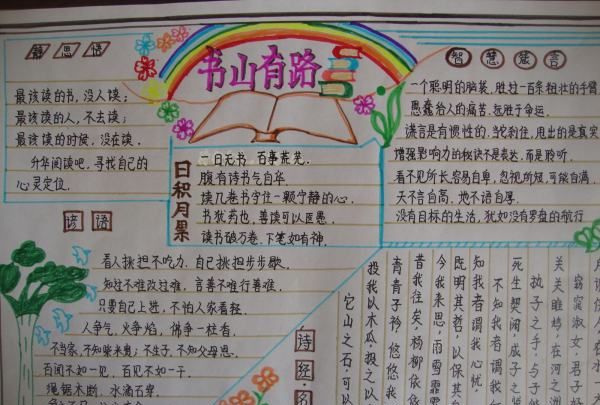 静思语
最该读的书，没人读；
最该读的人，不去读；
最该读的时候，没在读。
升华阅读吧，寻找自己的
心灵定位。
书山有路
日积月累
一日无书 百事荒芜.
腹有诗书气自华
读几卷书守住一颗宁静的心.
书犹药也，善读可以医愚
读书破万卷.下笔如有神.
智慧箴言
一个聪明的脑袋，胜过一百条粗壮的手臂
愚蠢给人的痛苦，远胜于命运.
谎言是有惯性的.当它刹住，甩出的是真实
增强影响力的秘诀不是表达，而是聆听.
看不见所长，容易自卑，忽视所短，可能自满.
天不言自高，地不语自厚.
没有目标的生活，犹如没有罗盘的航行
谚语
看人挑担不吃力，自己挑担步步歇.
知过不难改过难，言善不难行善难.
只要自己上进，不怕人家看轻.
人争气，火争焰，佛争一柱香.
不当家，不知柴米贵；不生子，不知父母恩.
百闻不如一见，百见不如一干.
绳锯木断，水滴石穿.
诗经·名
窈窕淑女.君子好
关关雎鸠，在河之洲
执子之手，与子偕
死生契阔，成子之
不知我者谓我何
知我者谓我心忧，
既明其哲，以保其身
今我来思，雨雪霏霏
昔我往矣，杨柳依依
青青子衿，悠悠我
投我以木瓜，投之以
它山之石，可以